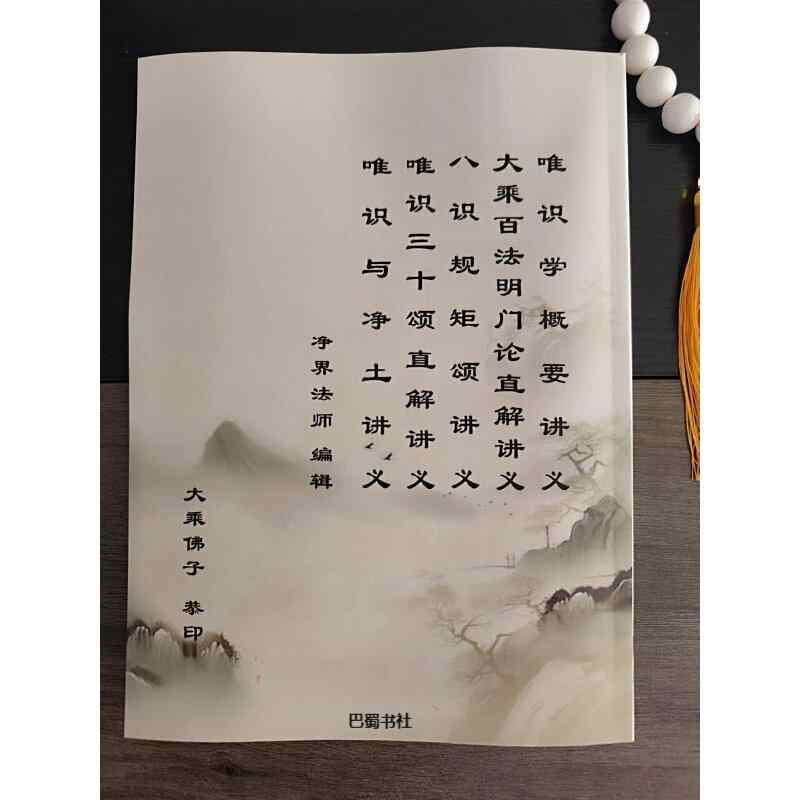 唯识学概要讲义
大乘百法明门论直解讲义
八识规矩颂讲义
唯识三十颂直解讲义
唯识与净土讲义
净界法师 编辑
大乘佛子 恭印
巴蜀书社